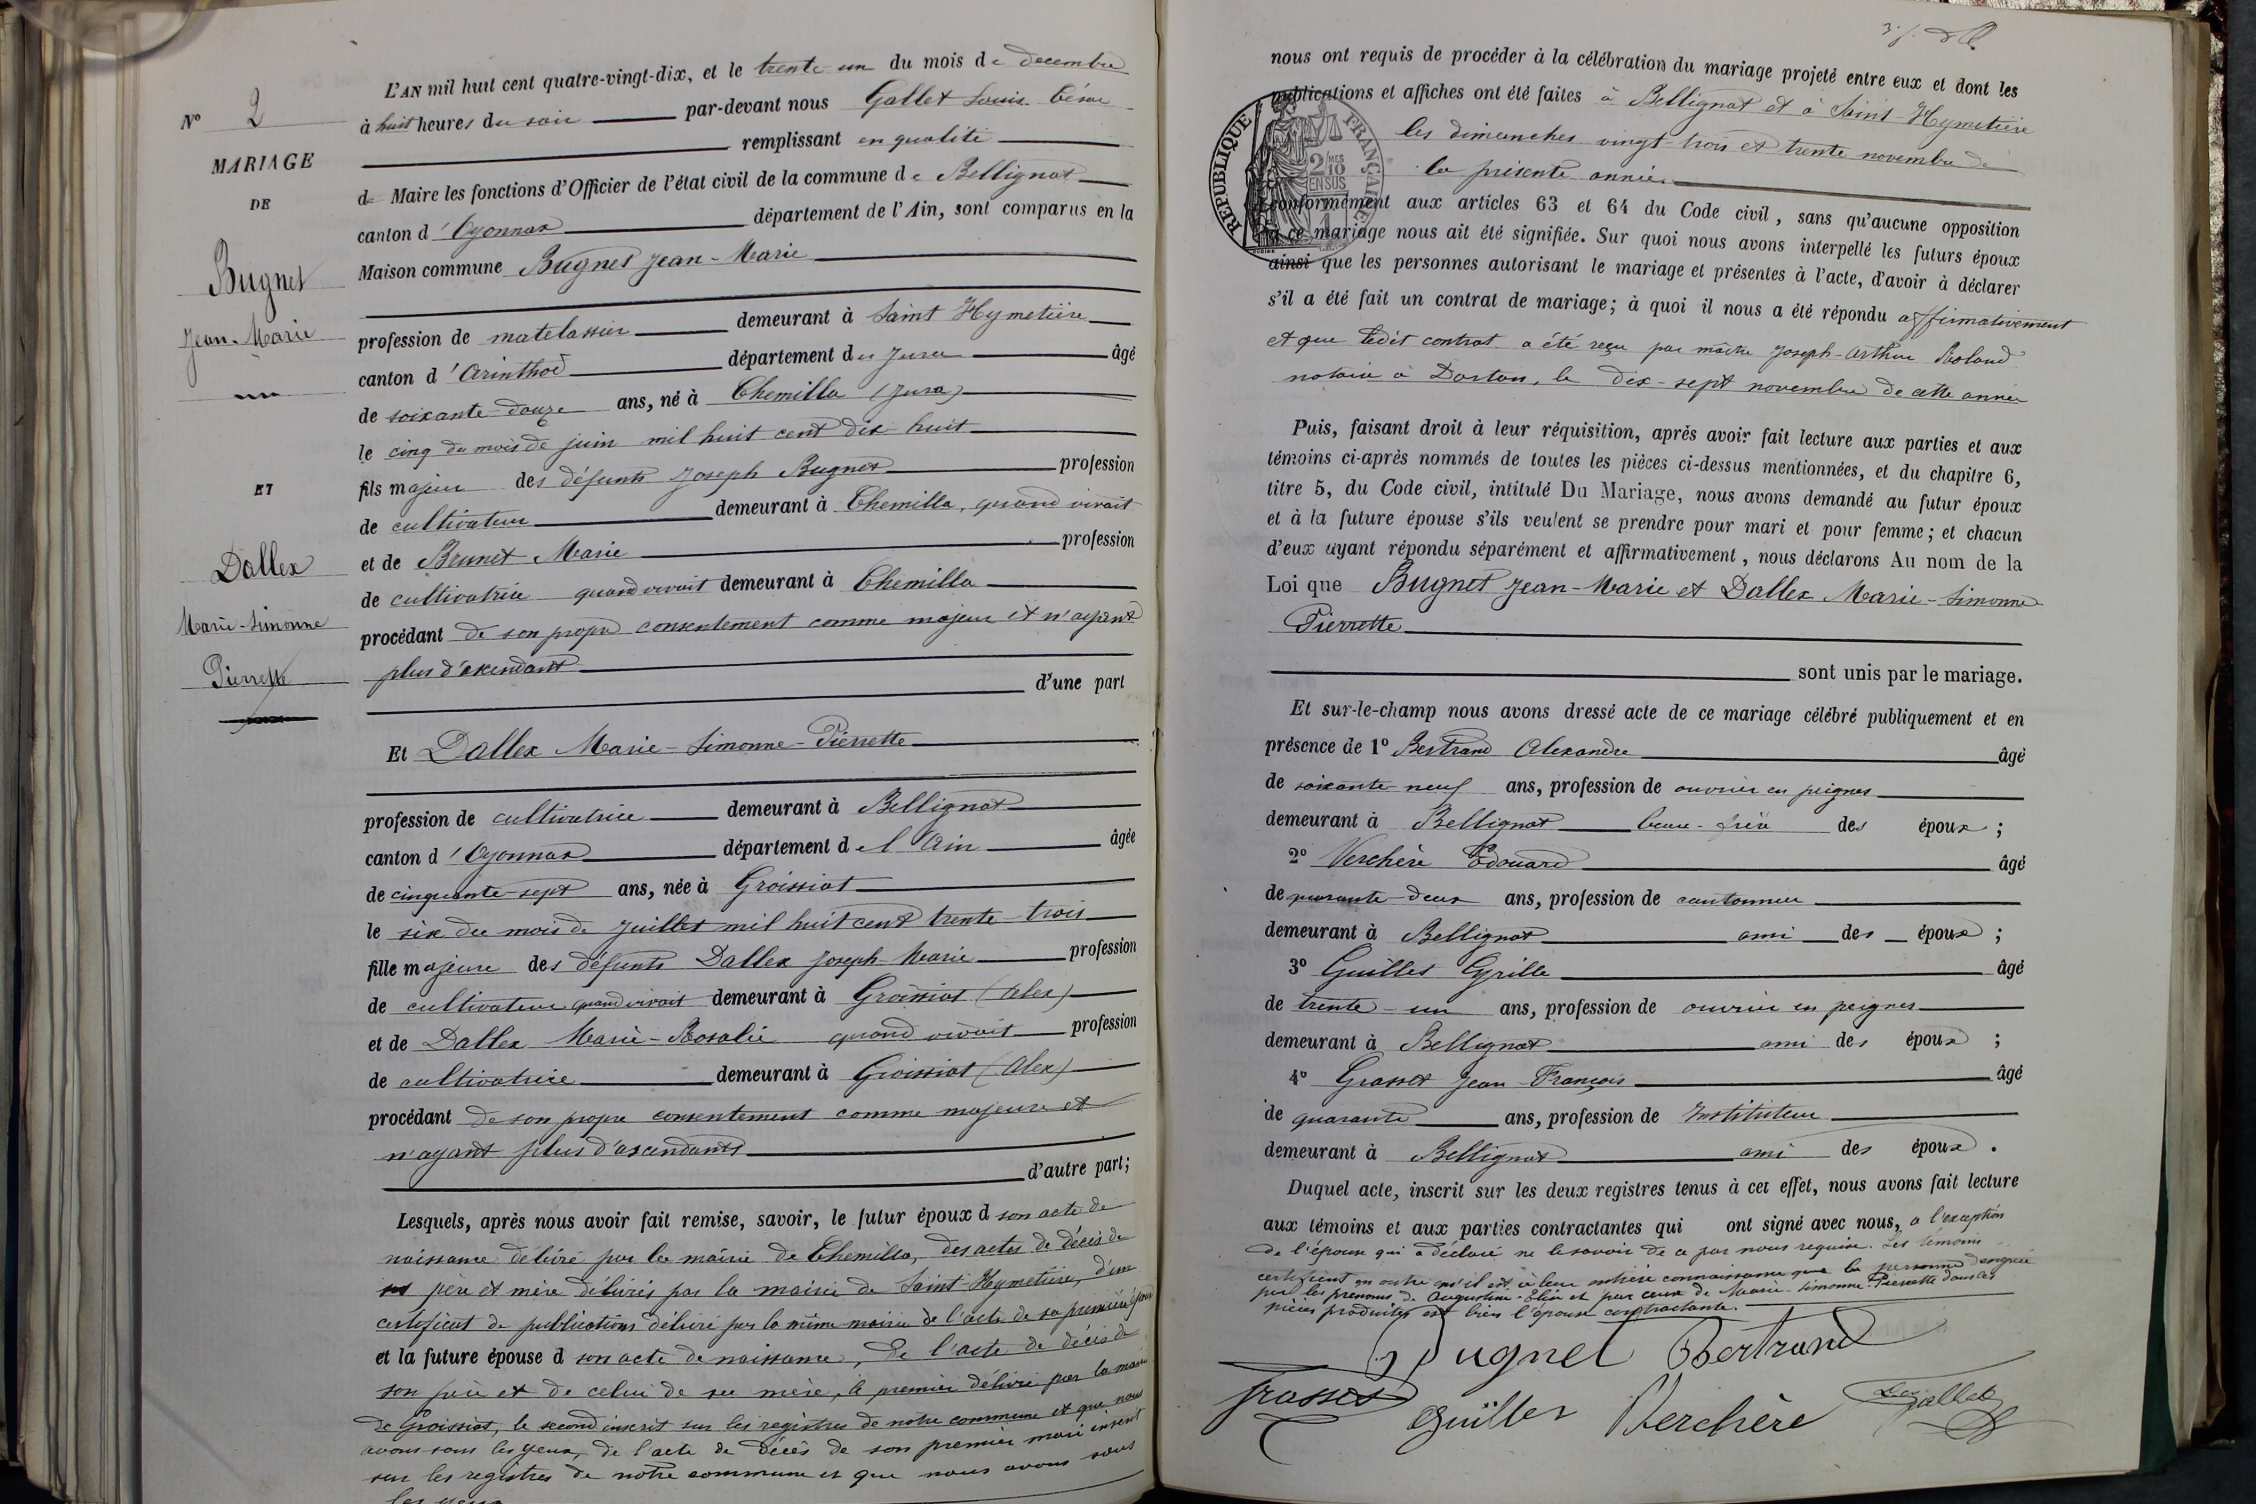 N° 2
MARIAGE
DE
Bugnet
Jean-Marie
ET
Dallex
Marie-Simonne
Pierrette
L'AN mil huit cent quatre-vingt-dix, et le trente un du mois de decembre
à huit heures du soir par-devant nous Gallet Louis César
remplissant en qualité
de Maire les fonctions d'Officier de l'état civil de la commune de Bellignat
canton d'Oyonnax département de l'Ain, sont comparus en la
Maison commune Bugnet Jean-Marie
profession de matelassier demeurant à Saint Hymetière
canton d'Arinthod département du Jura âgé
de soixante-douze ans, né à Chemilla (Jura)
le cinq du mois de juin mil huit cent dix-huit
fils majeur des défunts Joseph Bugnet profession
de cultivateur demeurant à Chemilla, quand vivait
et de Brunet Marie profession
de cultivatrice quand vivait demeurant à Chemilla
procédant de son propre consentement comme majeur et n'ayant
plus d'ascendants
d'une part
Et Dallex Marie-Simonne-Pierrette
profession de cultivatrice demeurant à Bellignat
canton d'Oyonnax département de l'Ain âgée
de cinquante-sept ans, née à Groissiat
le six du mois de juillet mil huit cent trente-trois
fille majeure des défunts Dallex Joseph Marie profession
de cultivateur quand vivait demeurant à Groissiat (Alex)
et de Dallex Marie-Rosalie quand vivait profession
de cultivatrice demeurant à Groissiat (Alex)
procédant de son propre consentement comme majeure et
n'ayant plus d'ascendants
d'autre part;
Lesquels, après nous avoir fait remise, savoir, le futur époux d son acte de
naissance délivré par la mairie de Chemilla, des actes de décès de
ses père et mère délivrés par la mairie de Saint-Hymetière, d'un
certificat de publications délivré par la même mairie de l'acte de sa première
et la future épouse d son acte de naissance, de l'acte de décès de
son père et de celui de sa mère, le premier délivré par la mairie
de Groissiat, le second inscrit sur les registres de notre commune et que nous
avons sous les yeux, de l'acte de décès de son premier mari inscrit
sur les registres de notre commune et que nous avons sous
les yeux
nous ont requis de procéder à la célébration du mariage projeté entre eux et dont les
publications et affiches ont été faites à Bellignat et à Saint-Hymetière
les dimanches vingt-trois et trente novembre de
la présente année
REPUBLIQUE FRANÇAISE
2/10
EN SUS
conformément aux articles 63 et 64 du Code civil, sans qu'aucune opposition
à ce mariage nous ait été signifiée. Sur quoi nous avons interpellé les futurs époux
ainsi que les personnes autorisant le mariage et présentes à l'acte, d'avoir à déclarer
s'il a été fait un contrat de mariage; à quoi il nous a été répondu affirmativement
et que ledit contrat a été reçu par maître Joseph-Arthur Roland
notaire à Dortan, le dix-sept novembre de cette année
Puis, faisant droit à leur réquisition, après avoir fait lecture aux parties et aux
témoins ci-après nommés de toutes les pièces ci-dessus mentionnées, et du chapitre 6,
titre 5, du Code civil, intitulé Du Mariage, nous avons demandé au futur époux
et à la future épouse s'ils veulent se prendre pour mari et pour femme; et chacun
d'eux ayant répondu séparément et affirmativement, nous déclarons Au nom de la
Loi que Bugnet Jean-Marie et Dallex Marie-Simonne
Pierrette
sont unis par le mariage.
Et sur-le-champ nous avons dressé acte de ce mariage célébré publiquement et en
présence de 1° Bertrand Alexandre âgé
de soixante-neuf ans, profession de ouvrier en peignes
demeurant à Bellignat beau-frère des époux ;
2° Verchère Edouard âgé
de quarante-deux ans, profession de cantonnier
demeurant à Bellignat ami des époux ;
3° Guilles Cyrille âgé
de trente-un ans, profession de ouvrier en peignes
demeurant à Bellignat ami des époux ;
4° Grasset Jean-François âgé
de quarante ans, profession de Instituteur
demeurant à Bellignat ami des époux .
Duquel acte, inscrit sur les deux registres tenus à cet effet, nous avons fait lecture
aux témoins et aux parties contractantes qui ont signé avec nous, à l'exception
de l'épouse qui a déclaré ne le savoir de ce par nous requise. Les témoins
certifient en outre qu'il est à leur entière connaissance que la personne désignée
par les prénoms de Augustine-Elisa et par ceux de Marie-Simonne-Pierrette dans les
pièces produites est bien l'épouse contractante.
Bugnet Bertrand
Grasset Guilles Verchère Gallet